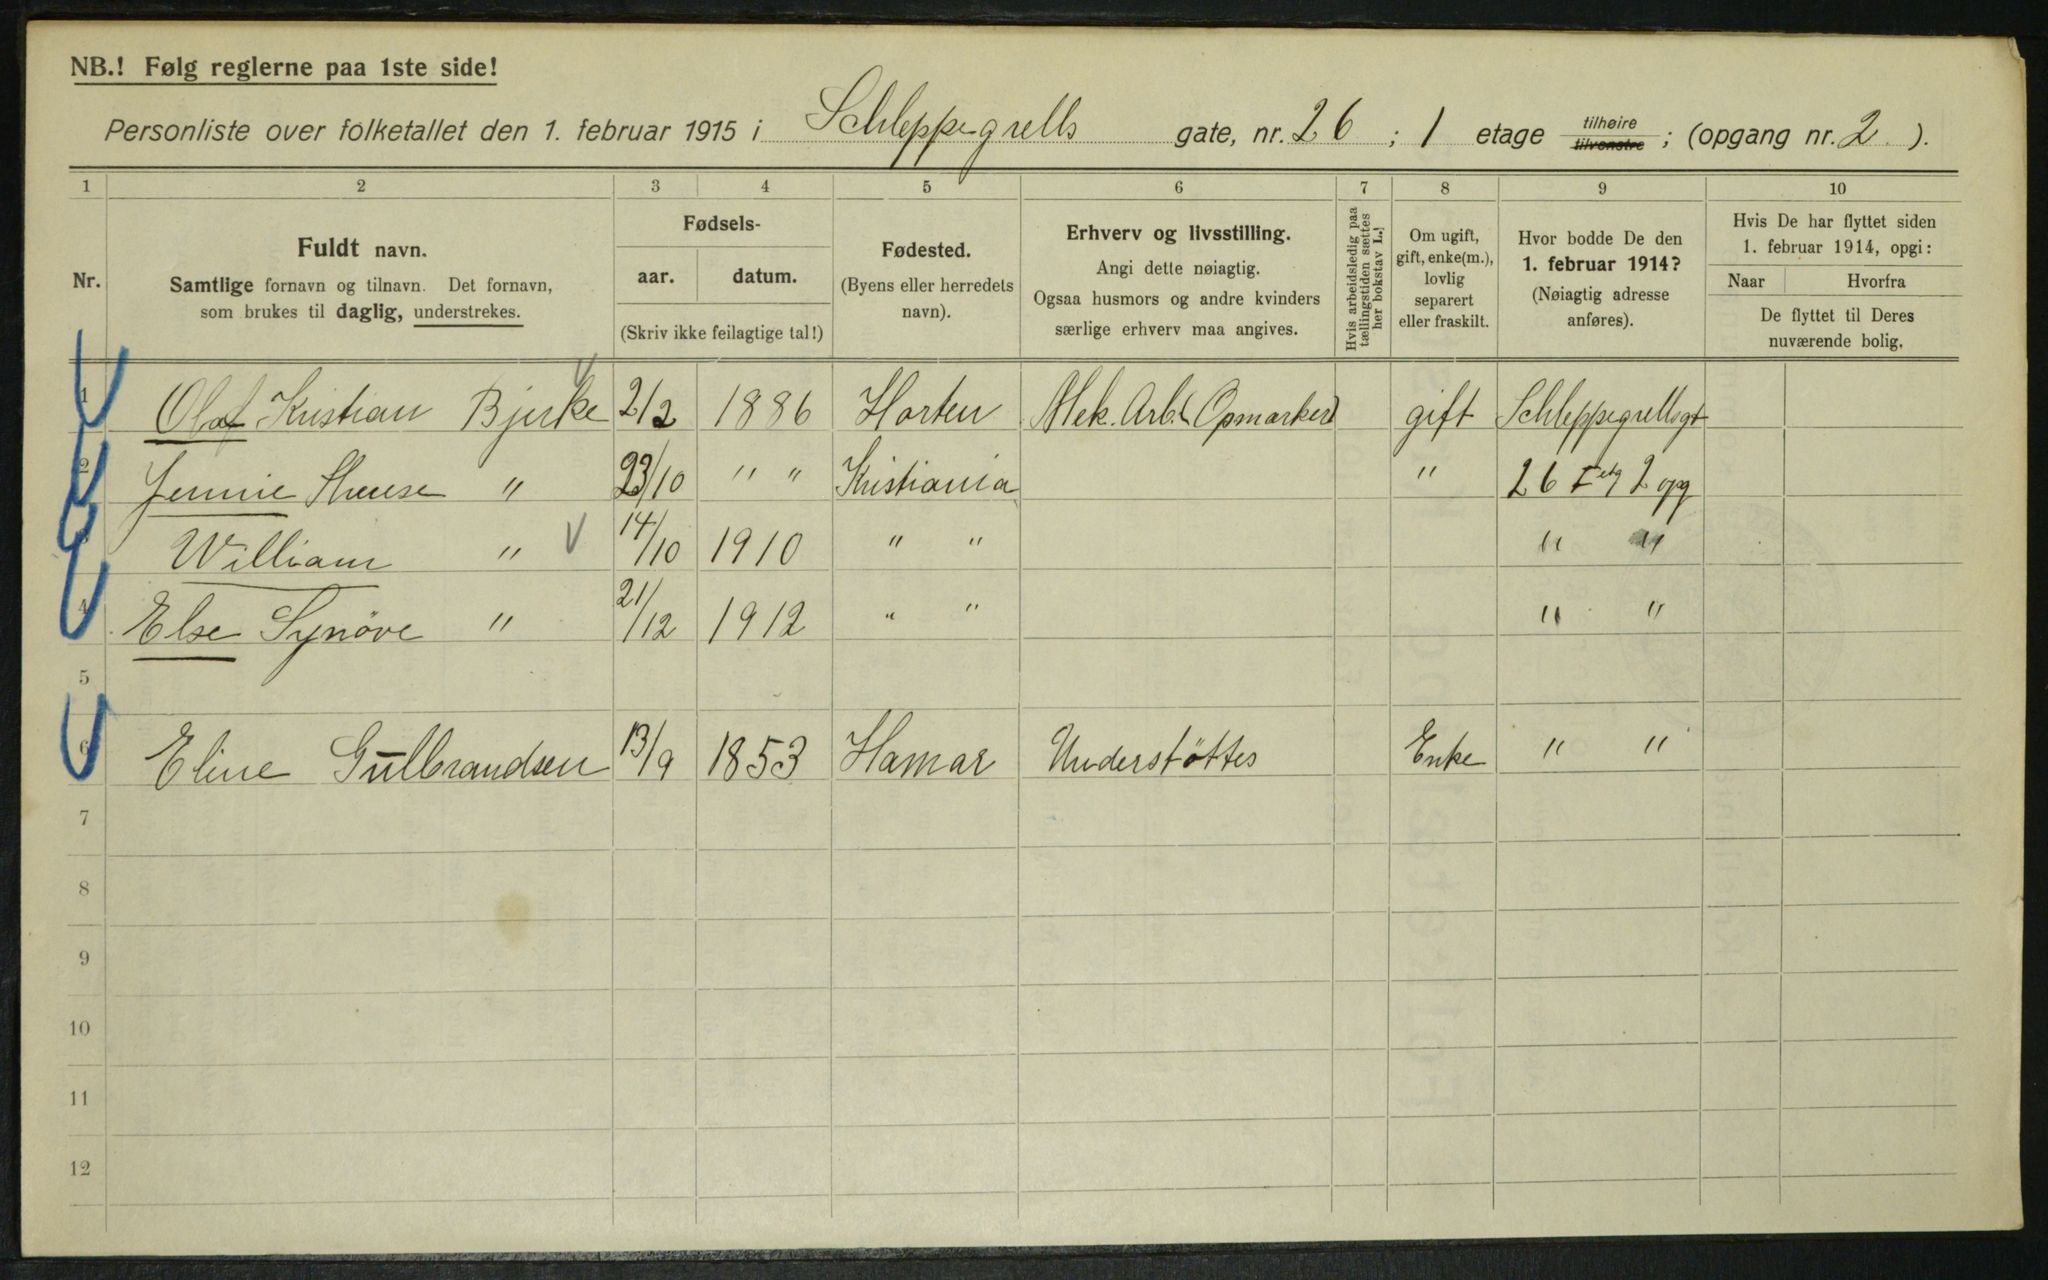 NB.! Følg reglerne paa 1ste side!
Personliste over folketallet den 1. februar 1915 i Schleppegrells gate, nr. 26 ; 1 etage tilhøire tilvenstre ; (opgang nr. 2 ).
1 2 3 4 5 6 7 8 9 10
Nr.
Fuldt navn.
Samtlige fornavn og tilnavn. Det fornavn,
som brukes til daglig, understrekes.
Fødsels-
aar. datum.
(Skriv ikke feilagtige tal!)
Fødested.
(Byens eller herredets
navn).
Erhverv og livsstilling.
Angi dette nøiagtig.
Ogsaa husmors og andre kvinders
særlige erhverv maa angives.
Hvis arbeidsledig paa
tællingstiden sættes
her bokstav L.
Om ugift,
gift, enke(m.),
lovlig
separert
eller fraskilt.
Hvor bodde De den
1. februar 1914?
(Nøiagtig adresse
anføres).
Hvis De har flyttet siden
1. februar 1914, opgi:
Naar Hvorfra
De flyttet til Deres
nuværende bolig.
1 Olaf Kristian Bjerke 2/2 1886 Horten Mek. Arb. (Opmerker) gift Schleppegrellsgt
2 Jennie " 23/10 " " Kristiania " 26 I etg 2 opg
3 William " 14/10 1910 " " " "
4 Else Synöve " 21/12 1912 " " " "
5
6 Eline Gulbrandsen 13/9 1853 Hamar Understöttes Enke " "
7
8
9
10
11
12